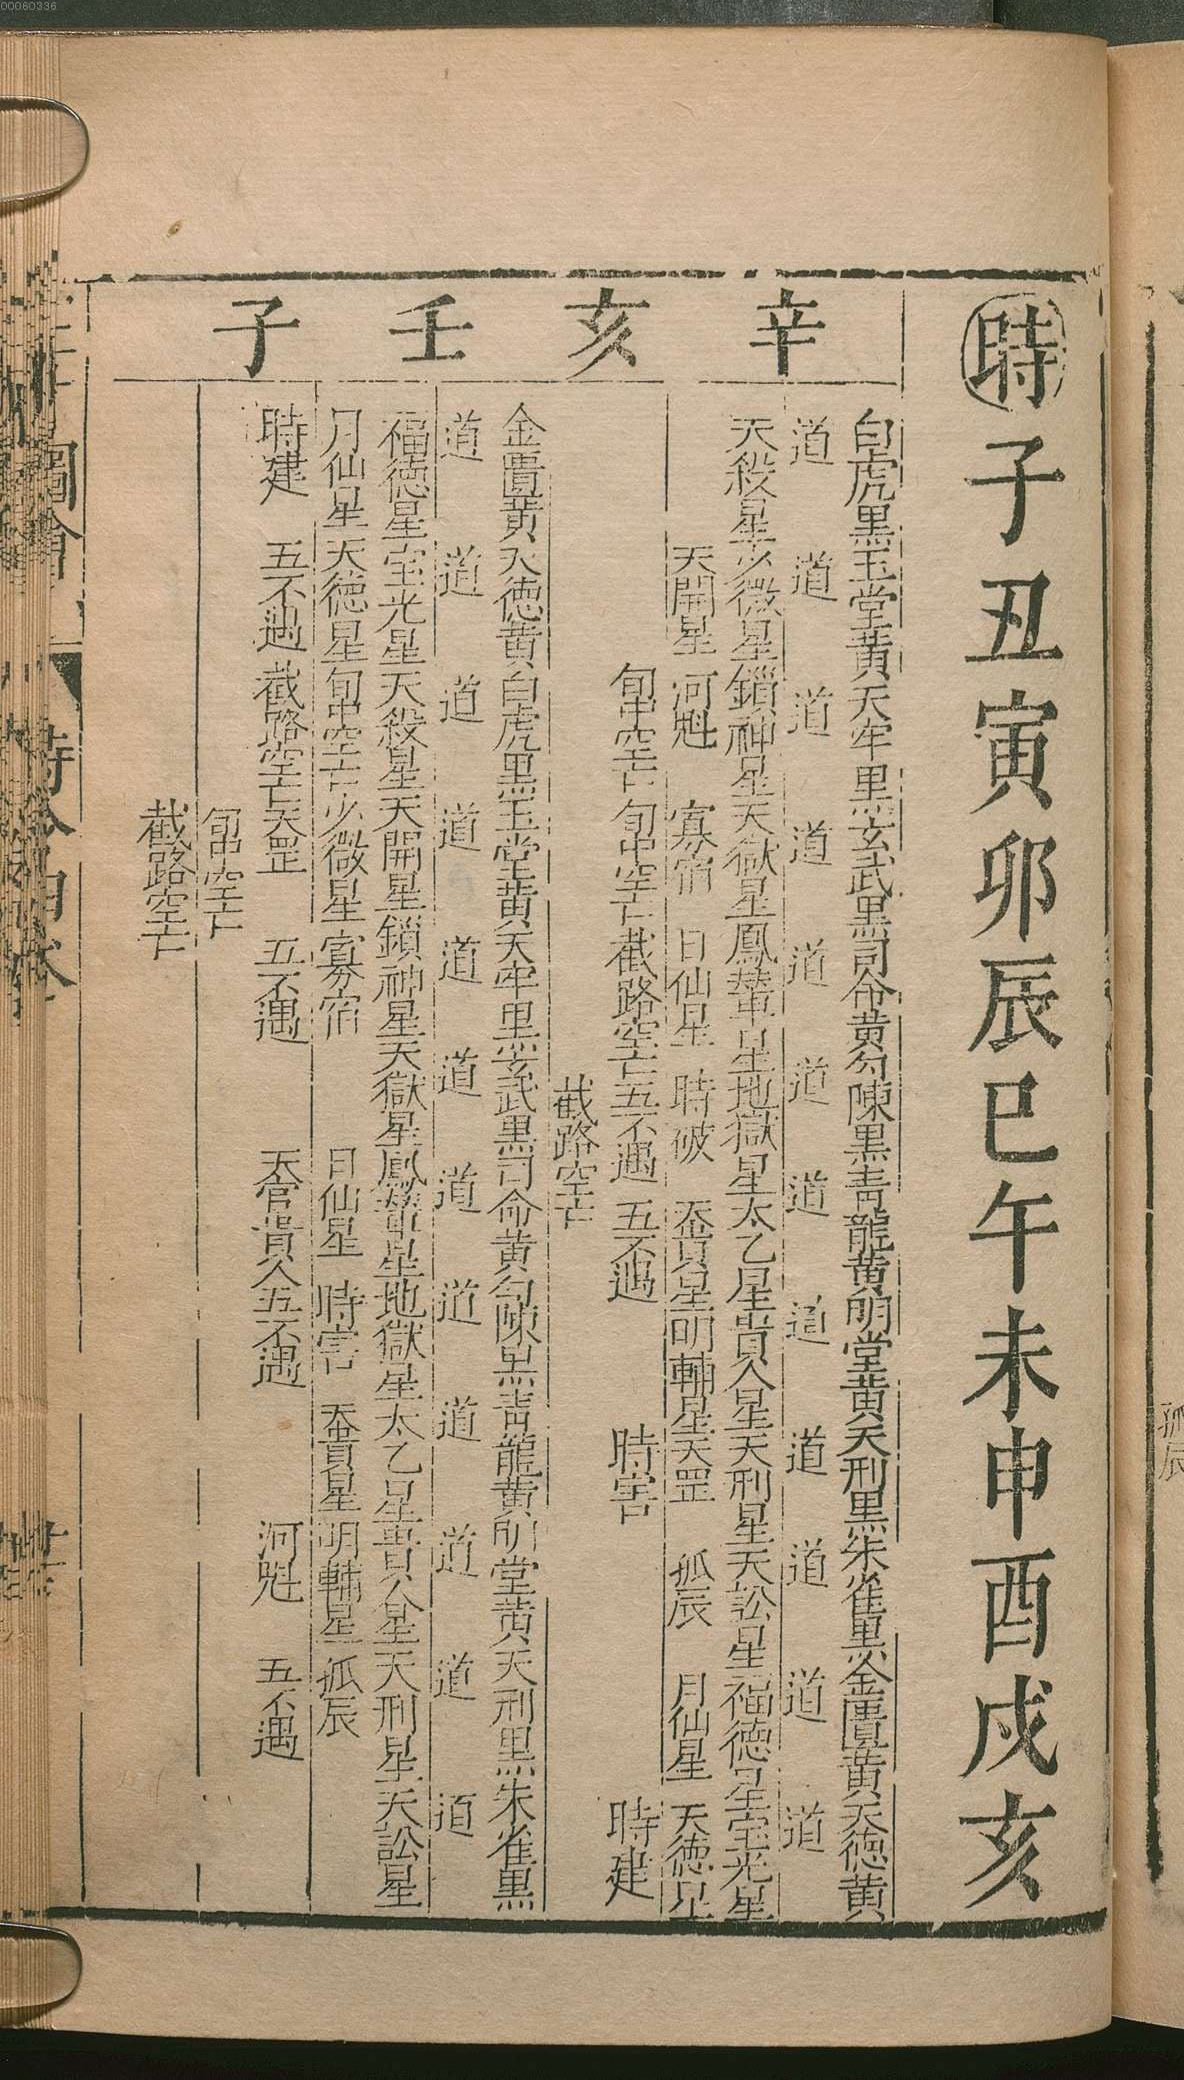 00060336
時子丑寅卯辰巳午未申酉戌亥
辛亥壬子
白虎黑玉堂黃天牢黑玄武黑司命黃勾陳黑青龍黃明堂黃天刑黑朱雀黑金匱黃天德黃
道道道道道道道道道道道道
天殺星少微星鎖神星天獄星鳳輦星地獄星太乙星貴人星天刑星天訟星福德星宝光星
天開星河魁寡宿日仙星時破天貴星明輔星天罡孤辰月仙星天德星
旬中空亡旬中空亡截路空亡五不遇五不遇時害時建
截路空亡
金匱黃天德黃白虎黑玉堂黃天牢黑玄武黑司命黃勾陳黑青龍黃明堂黃天刑黑朱雀黑
道道道道道道道道道道道道
福德星宝光星天殺星天開星鎖神星天獄星鳳輦星地獄星太乙星貴人星天刑星天訟星
月仙星天德星旬中空亡少微星寡宿日仙星時害天貴星明輔星孤辰
時建五不遇截路空亡天罡五不遇天官貴人五不遇河魁五不遇
旬中空亡
截路空亡
孤辰